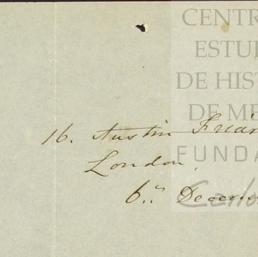 CENTR
ESTU
DE HIST
DE ME
FUNDA
Carlo
16. Austin Friar
London.
6th Decem